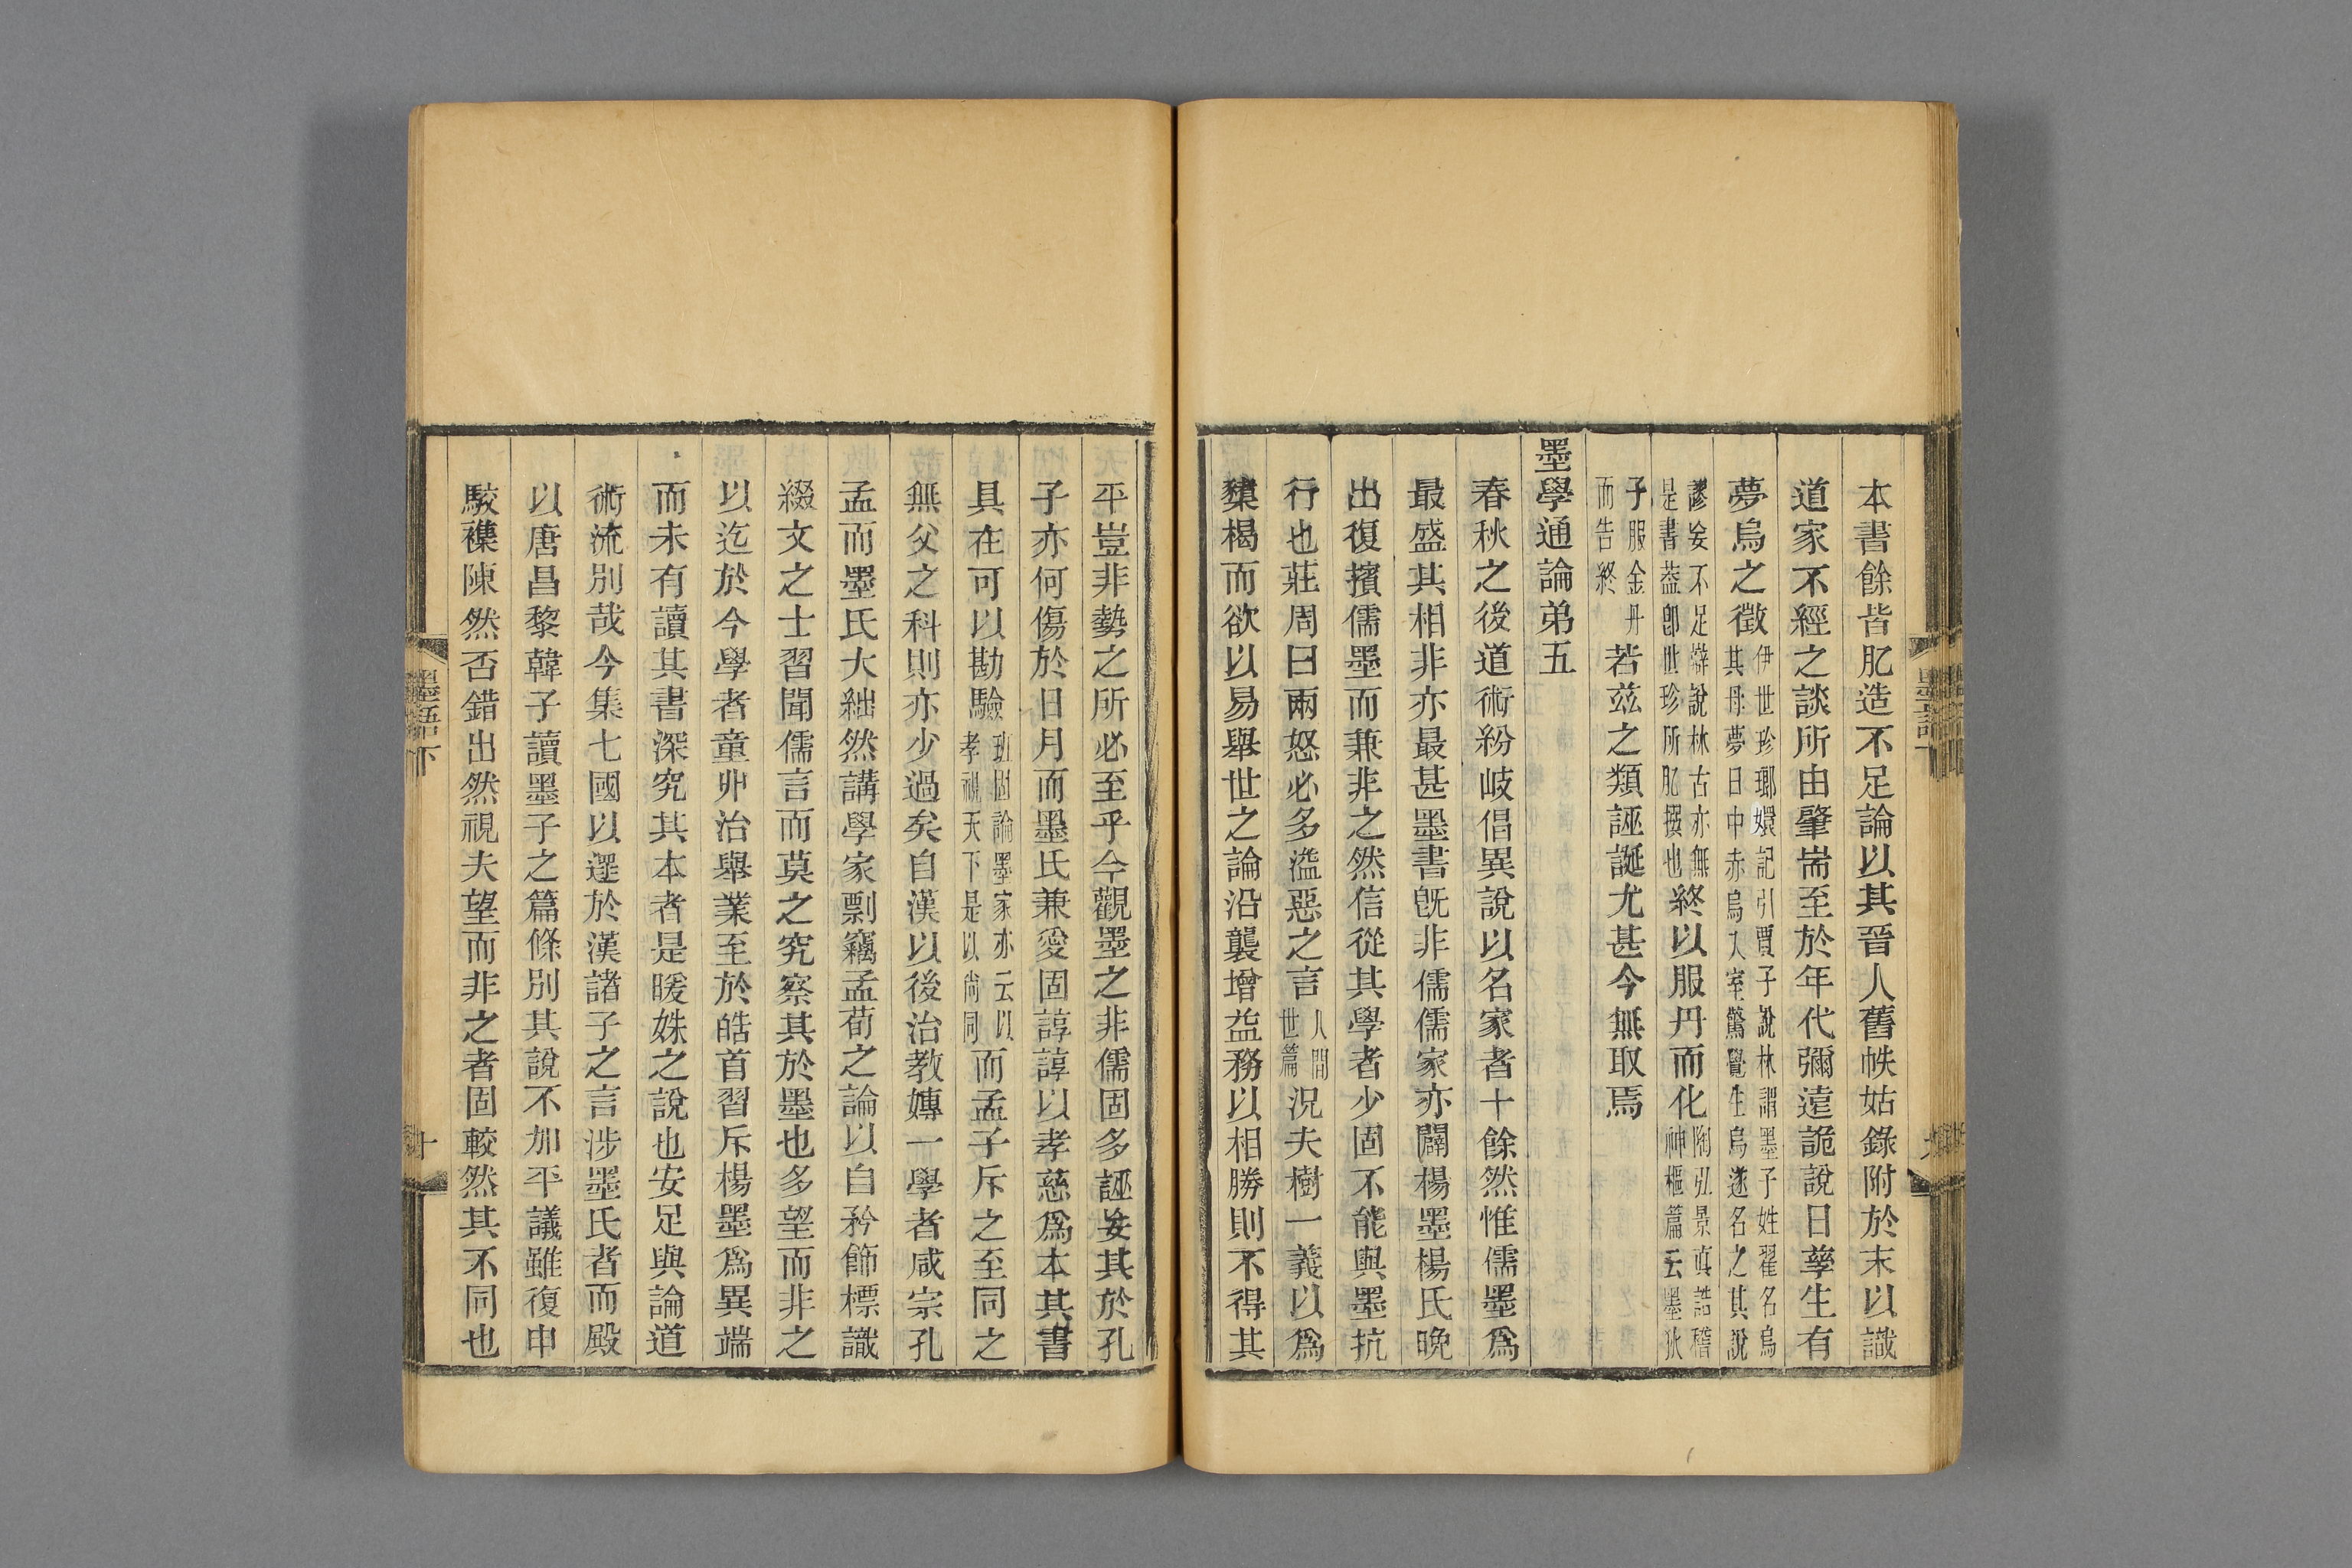 本書餘皆肊造不足論以其晉人舊帙姑錄附於末以識
道家不經之談所由肇耑至於年代彌遠詭說日孳生有
夢烏之徵伊世珍瑯嬛記引賈子說林謂墨子姓翟名烏其母夢日中赤烏入室驚覺生烏遂名之其說
謬妄不足辯說林古亦無是書葢卽世珍所肊撰也終以服丹而化陶弘景眞誥稽神樞篇云墨狄
子服金丹而告終若茲之類誣誕尤甚今無取焉
墨學通論弟五
春秋之後道術紛岐倡異說以名家者十餘然惟儒墨爲
最盛其相非亦最甚墨書旣非儒儒家亦闢楊墨楊氏晚
出復擯儒墨而兼非之然信從其學者少固不能與墨抗
行也莊周曰兩怒必多溢惡之言人閒世篇況夫樹一義以爲
櫫楬而欲以易舉世之論沿襲增益務以相勝則不得其
平豈非勢之所必至乎今觀墨之非儒固多誣妄其於孔
子亦何傷於日月而墨氏兼愛固諄諄以孝慈爲本其書
具在可以勘驗班固論墨家亦云以孝視天下是以尙同而孟子斥之至同之
無父之科則亦少過矣自漢以後治教嫥一學者咸宗孔
孟而墨氏大絀然講學家剽竊孟荀之論以自矜飾標識
綴文之士習聞儒言而莫之究察其於墨也多望而非之
以迄於今學者童丱治舉業至於皓首習斥楊墨爲異端
而未有讀其書深究其本者是暖姝之說也安足與論道
術流別哉今集七國以遝於漢諸子之言涉墨氏者而殿
以唐昌黎韓子讀墨子之篇條別其說不加平議雖復申
駮襍陳然否錯出然視夫望而非之者固較然其不同也
墨語下
十